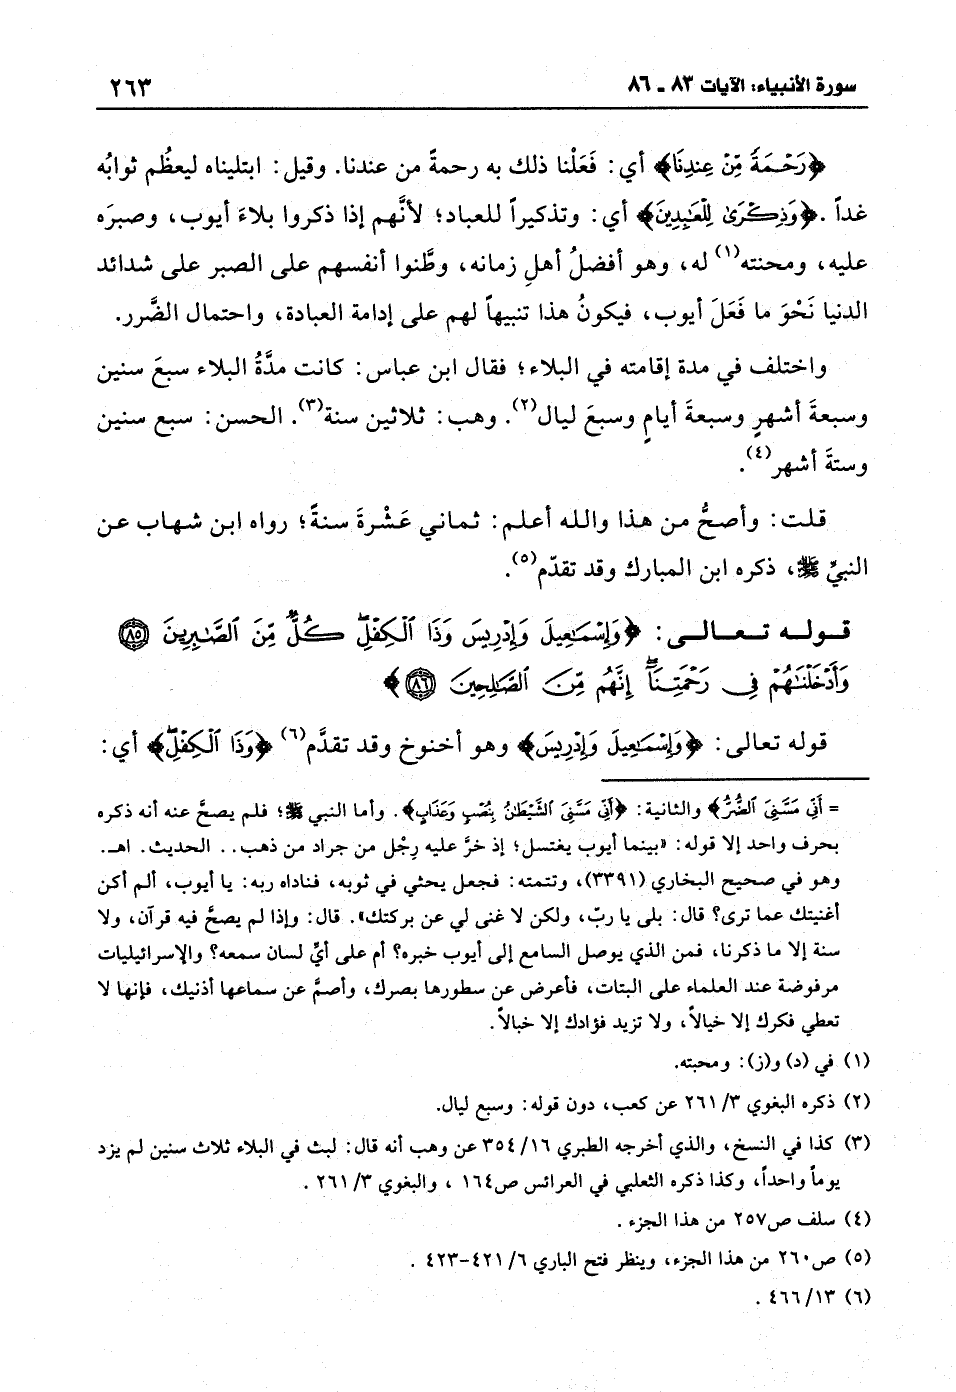 سورة الأنبياء: الآيات ٨٣ ـ ٨٦
٢٦٣
﴿رَحْمَةً مِّنْ عِندِنَا﴾ أي: فَعَلْنا ذلك به رحمةً من عندنا. وقيل: ابتليناه ليعظُم ثوابُه
غداً. ﴿وَذِكْرَىٰ لِلْعَٰبِدِينَ﴾ أي: وتذكيراً للعباد؛ لأنَّهم إذا ذكروا بلاءَ أيوب، وصبرَه
عليه، ومحنته(١) له، وهو أفضلُ أهلِ زمانه، وطَّنوا أنفسهم على الصبر على شدائد
الدنيا نَحْوَ ما فَعَلَ أيوب، فيكونُ هذا تنبيهاً لهم على إدامة العبادة، واحتمال الضَّرر.
واختلف في مدة إقامته في البلاء؛ فقال ابن عباس: كانت مدَّةُ البلاء سبعَ سنين
وسبعةَ أشهرٍ وسبعةَ أيامٍ وسبعَ ليال(٢). وهب: ثلاثين سنة(٣). الحسن: سبع سنين
وستةَ أشهر(٤).
قلت: وأصحُّ من هذا والله أعلم: ثماني عَشْرةَ سنةً؛ رواه ابن شهاب عن
النبيِّ ﷺ، ذكره ابن المبارك وقد تقدّم(٥).
قوله تعالى: ﴿وَإِسْمَٰعِيلَ وَإِدْرِيسَ وَذَا ٱلْكِفْلِۖ كُلٌّ مِّنَ ٱلصَّٰبِرِينَ ٨٥
وَأَدْخَلْنَٰهُمْ فِى رَحْمَتِنَآۖ إِنَّهُم مِّنَ ٱلصَّٰلِحِينَ ٨٦﴾
قوله تعالى: ﴿وَإِسْمَٰعِيلَ وَإِدْرِيسَ﴾ وهو أخنوخ وقد تقدَّم(٦) ﴿وَذَا ٱلْكِفْلِۖ﴾ أي:
= أَنِّى مَسَّنِىَ ٱلضُّرُّ﴾ والثانية: ﴿أَنِّى مَسَّنِىَ ٱلشَّيْطَٰنُ بِنُصْبٍ وَعَذَابٍ﴾. وأما النبي ﷺ؛ فلم يصحَّ عنه أنه ذكره
بحرف واحد إلا قوله: «بينما أيوب يغتسل؛ إذ خرَّ عليه رِجْل من جراد من ذهب.. الحديث. اهـ.
وهو في صحيح البخاري (٣٣٩١)، وتتمته: فجعل يحثي في ثوبه، فناداه ربه: يا أيوب، ألم أكن
أغنيتك عما ترى؟ قال: بلى يا ربّ، ولكن لا غنى لي عن بركتك». قال: وإذا لم يصحَّ فيه قرآن، ولا
سنة إلا ما ذكرنا، فمن الذي يوصل السامع إلى أيوب خبره؟ أم على أيِّ لسان سمعه؟ والإسرائيليات
مرفوضة عند العلماء على البتات، فأعرض عن سطورها بصرك، وأصمَّ عن سماعها أذنيك، فإنها لا
تعطي فكرك إلا خيالاً، ولا تزيد فؤادك إلا خبالاً.
(١) في (د) و(ز): ومحبته.
(٢) ذكره البغوي ٣/ ٢٦١ عن كعب، دون قوله: وسبع ليال.
(٣) كذا في النسخ، والذي أخرجه الطبري ١٦/ ٣٥٤ عن وهب أنه قال: لبث في البلاء ثلاث سنين لم يزد
يوماً واحداً، وكذا ذكره الثعلبي في العرائس ص١٦٤ ، والبغوي ٣/ ٢٦١ .
(٤) سلف ص٢٥٧ من هذا الجزء .
(٥) ص٢٦٠ من هذا الجزء، وينظر فتح الباري ٦/ ٤٢١-٤٢٣ .
(٦) ١٣/ ٤٦٦ .